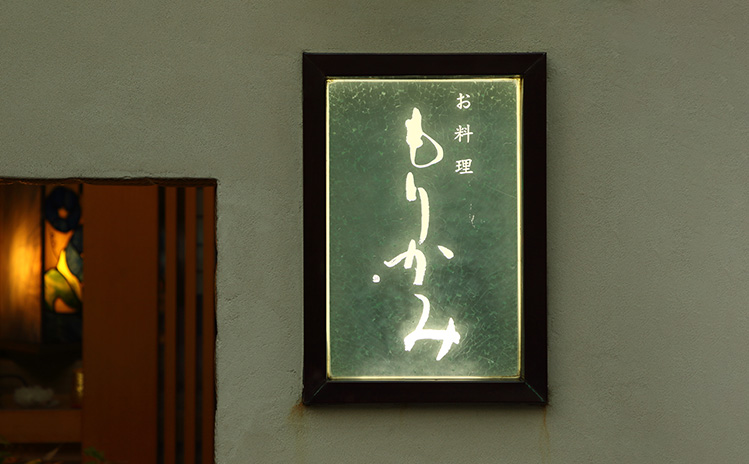 お料理
もりかみ